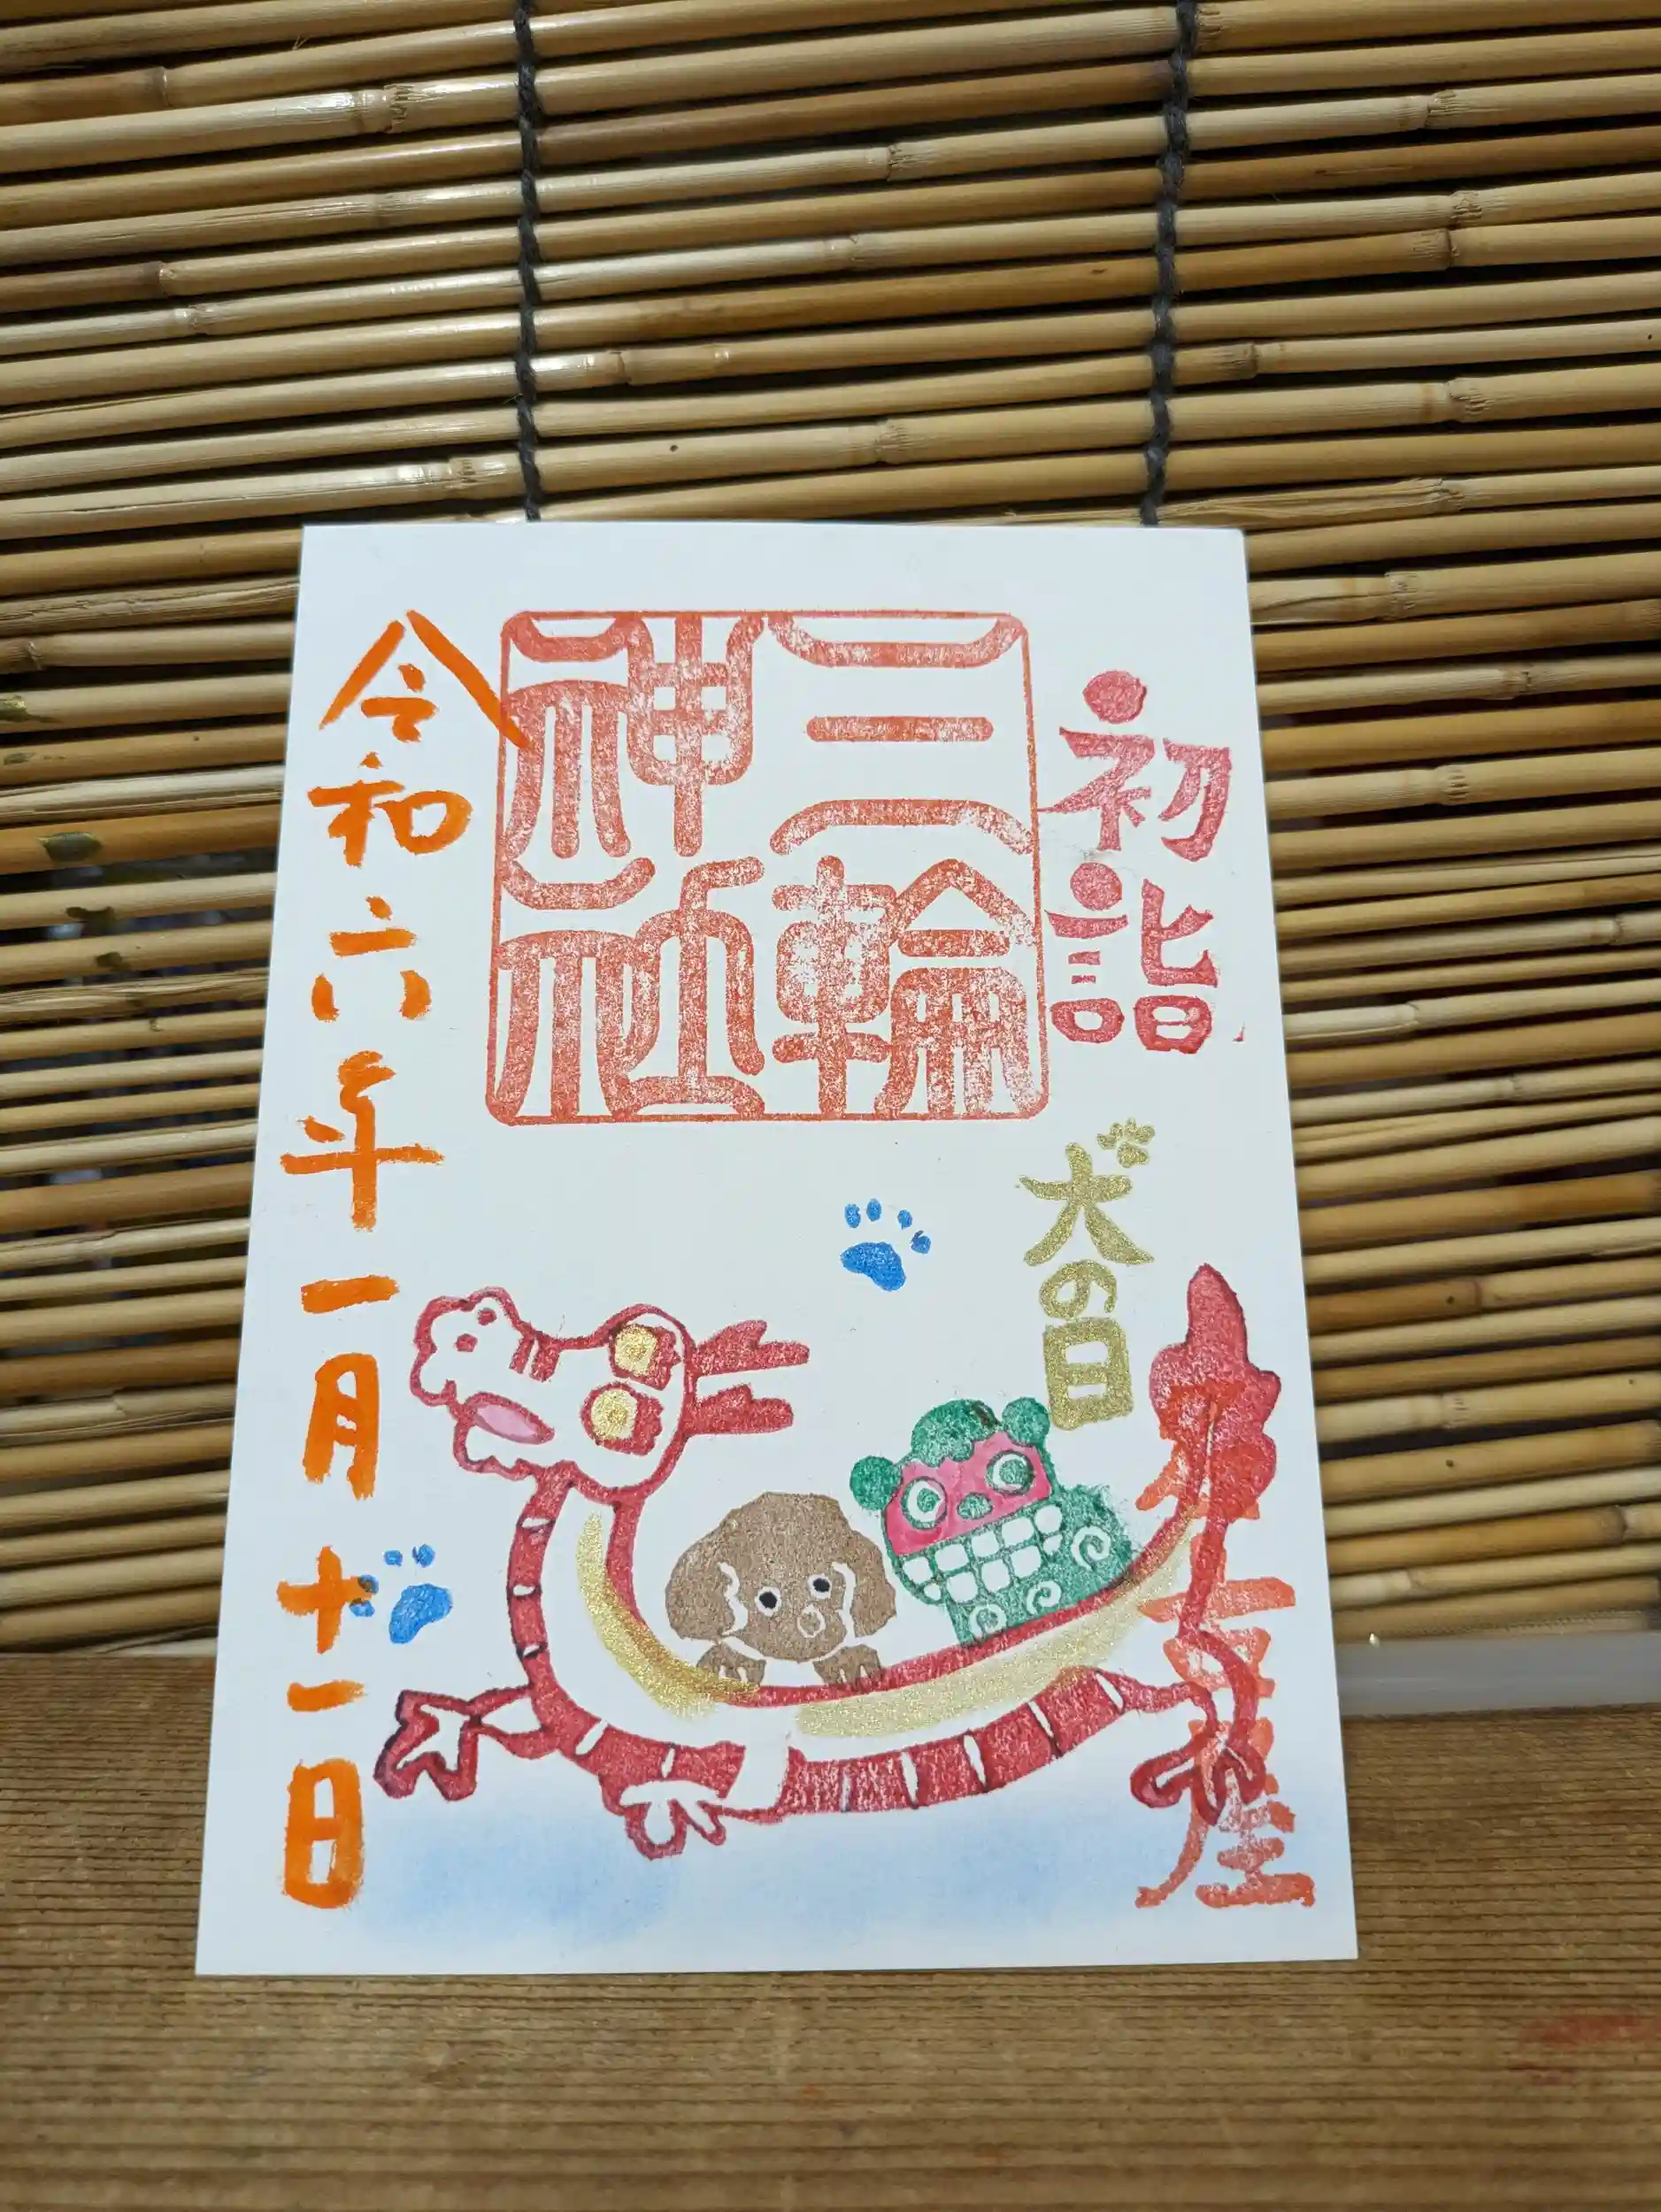 初詣
三輪
神社
犬の日
令和六年一月十一日